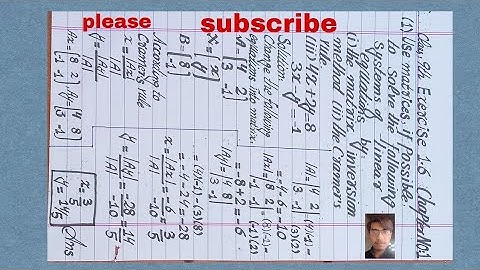 please subscribe
Class 9th Exercise 1.6 Chapter NO:1
(1) Use matrices. if possible.
to Solve the following
Systems of linear
equations by:
(i) the matrix inversion
method (ii) the Cramer's
rule.
(iii) 4x+2y=8
3x-y=-1
Solution:
Change the following
equations into matrix
A = [4 2
3 -1]
X = [x
y]
B = [8
-1]
According to
Cramer's rule
x = |Ax|/|A|
y = |Ay|/|A|
Ax = [8 2 Ay = [4 8
-1 -1], 3 -1]
|A| = |4 2 = (4)(-1) -
3 -1| (3)(2)
= -4-6 = -10
|Ax| = |8 2 = (8)(-1) -
-1 -1| (-1)(2)
= -8+2 = -6
|Ay| = |4 8
3 -1|
= (4)(-1) - (3)(8)
= -4-24 = -28
x = |Ax|/|A| = -6/-10 = 3/5
y = |Ay|/|A| = -28/-10 = 14/5
x = 3/5
y = 14/5 Ans